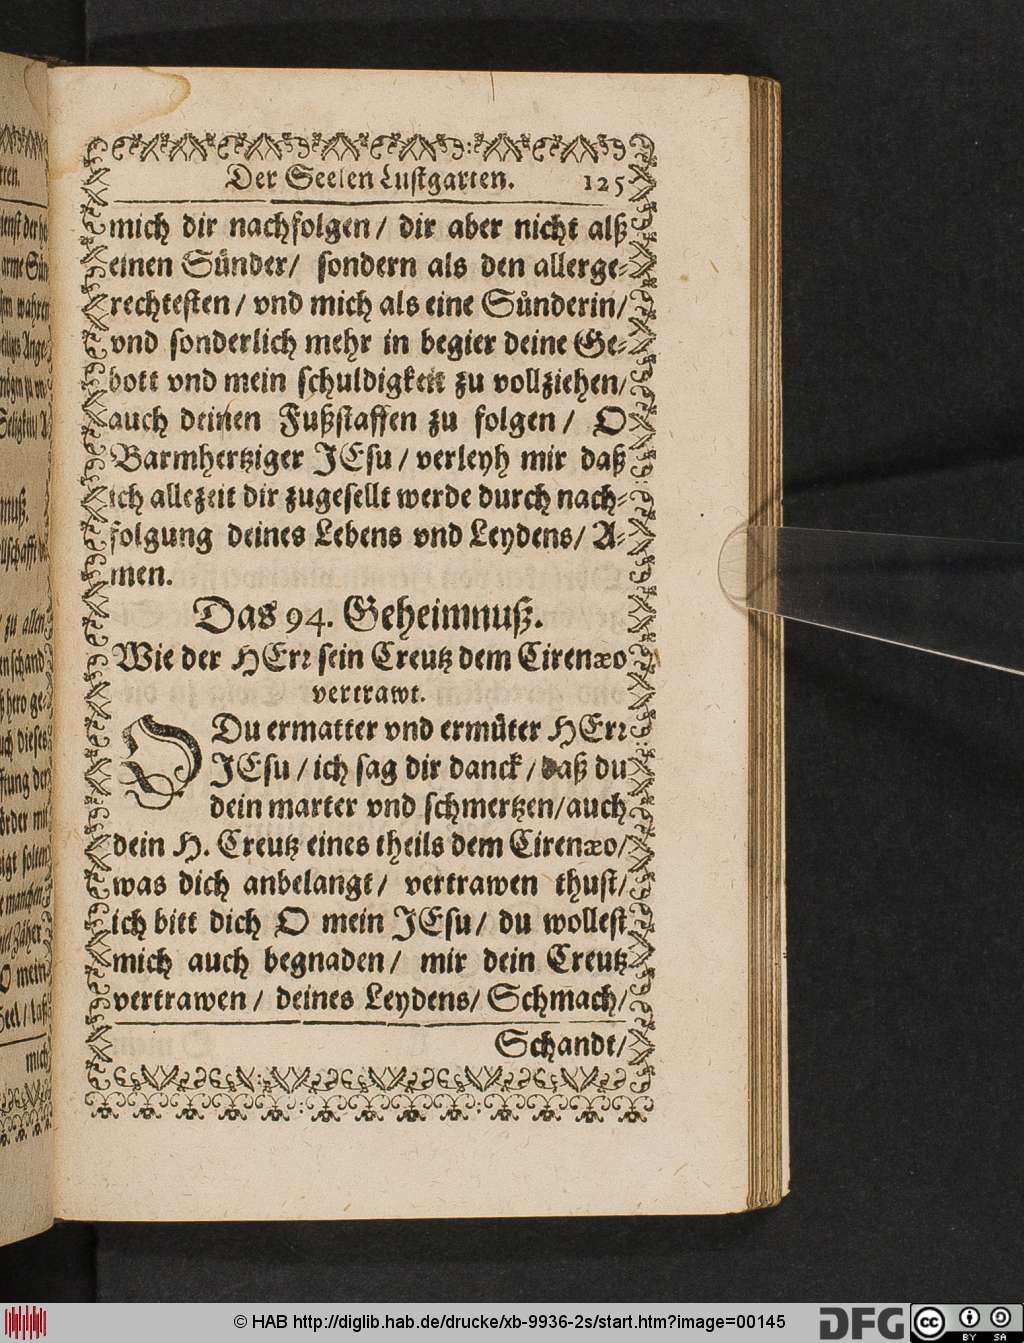 Der Seelen Lustgarten. 125
mich dir nachfolgen / dir aber nicht alß
einen Sünder / sondern als den allerge-
rechtesten / vnd mich als eine Sünderin /
vnd sonderlich mehr in begier deine Ge-
bott vnd mein schuldigkeit zu vollziehen /
auch deinen Fußstaffen zu folgen / O
Barmhertziger JEsu / verleyh mir daß
ich allezeit dir zugesellt werde durch nach-
folgung deines Lebens vnd Leydens / A-
men.
Das 94. Geheimnuß.
Wie der HErr sein Creutz dem Cirenæo
vertrawt.
O Du ermatter vnd ermüter HErr
JEsu / ich sag dir danck / daß du
dein marter vnd schmertzen / auch
dein H. Creutz eines theils dem Cirenæo /
was dich anbelangt / vertrawen thust /
ich bitt dich O mein JEsu / du wollest
mich auch begnaden / mir dein Creutz
vertrawen / deines Leydens / Schmach /
Schandt /
© HAB http://diglib.hab.de/drucke/xb-9936-2s/start.htm?image=00145
DFG
cc BY SA